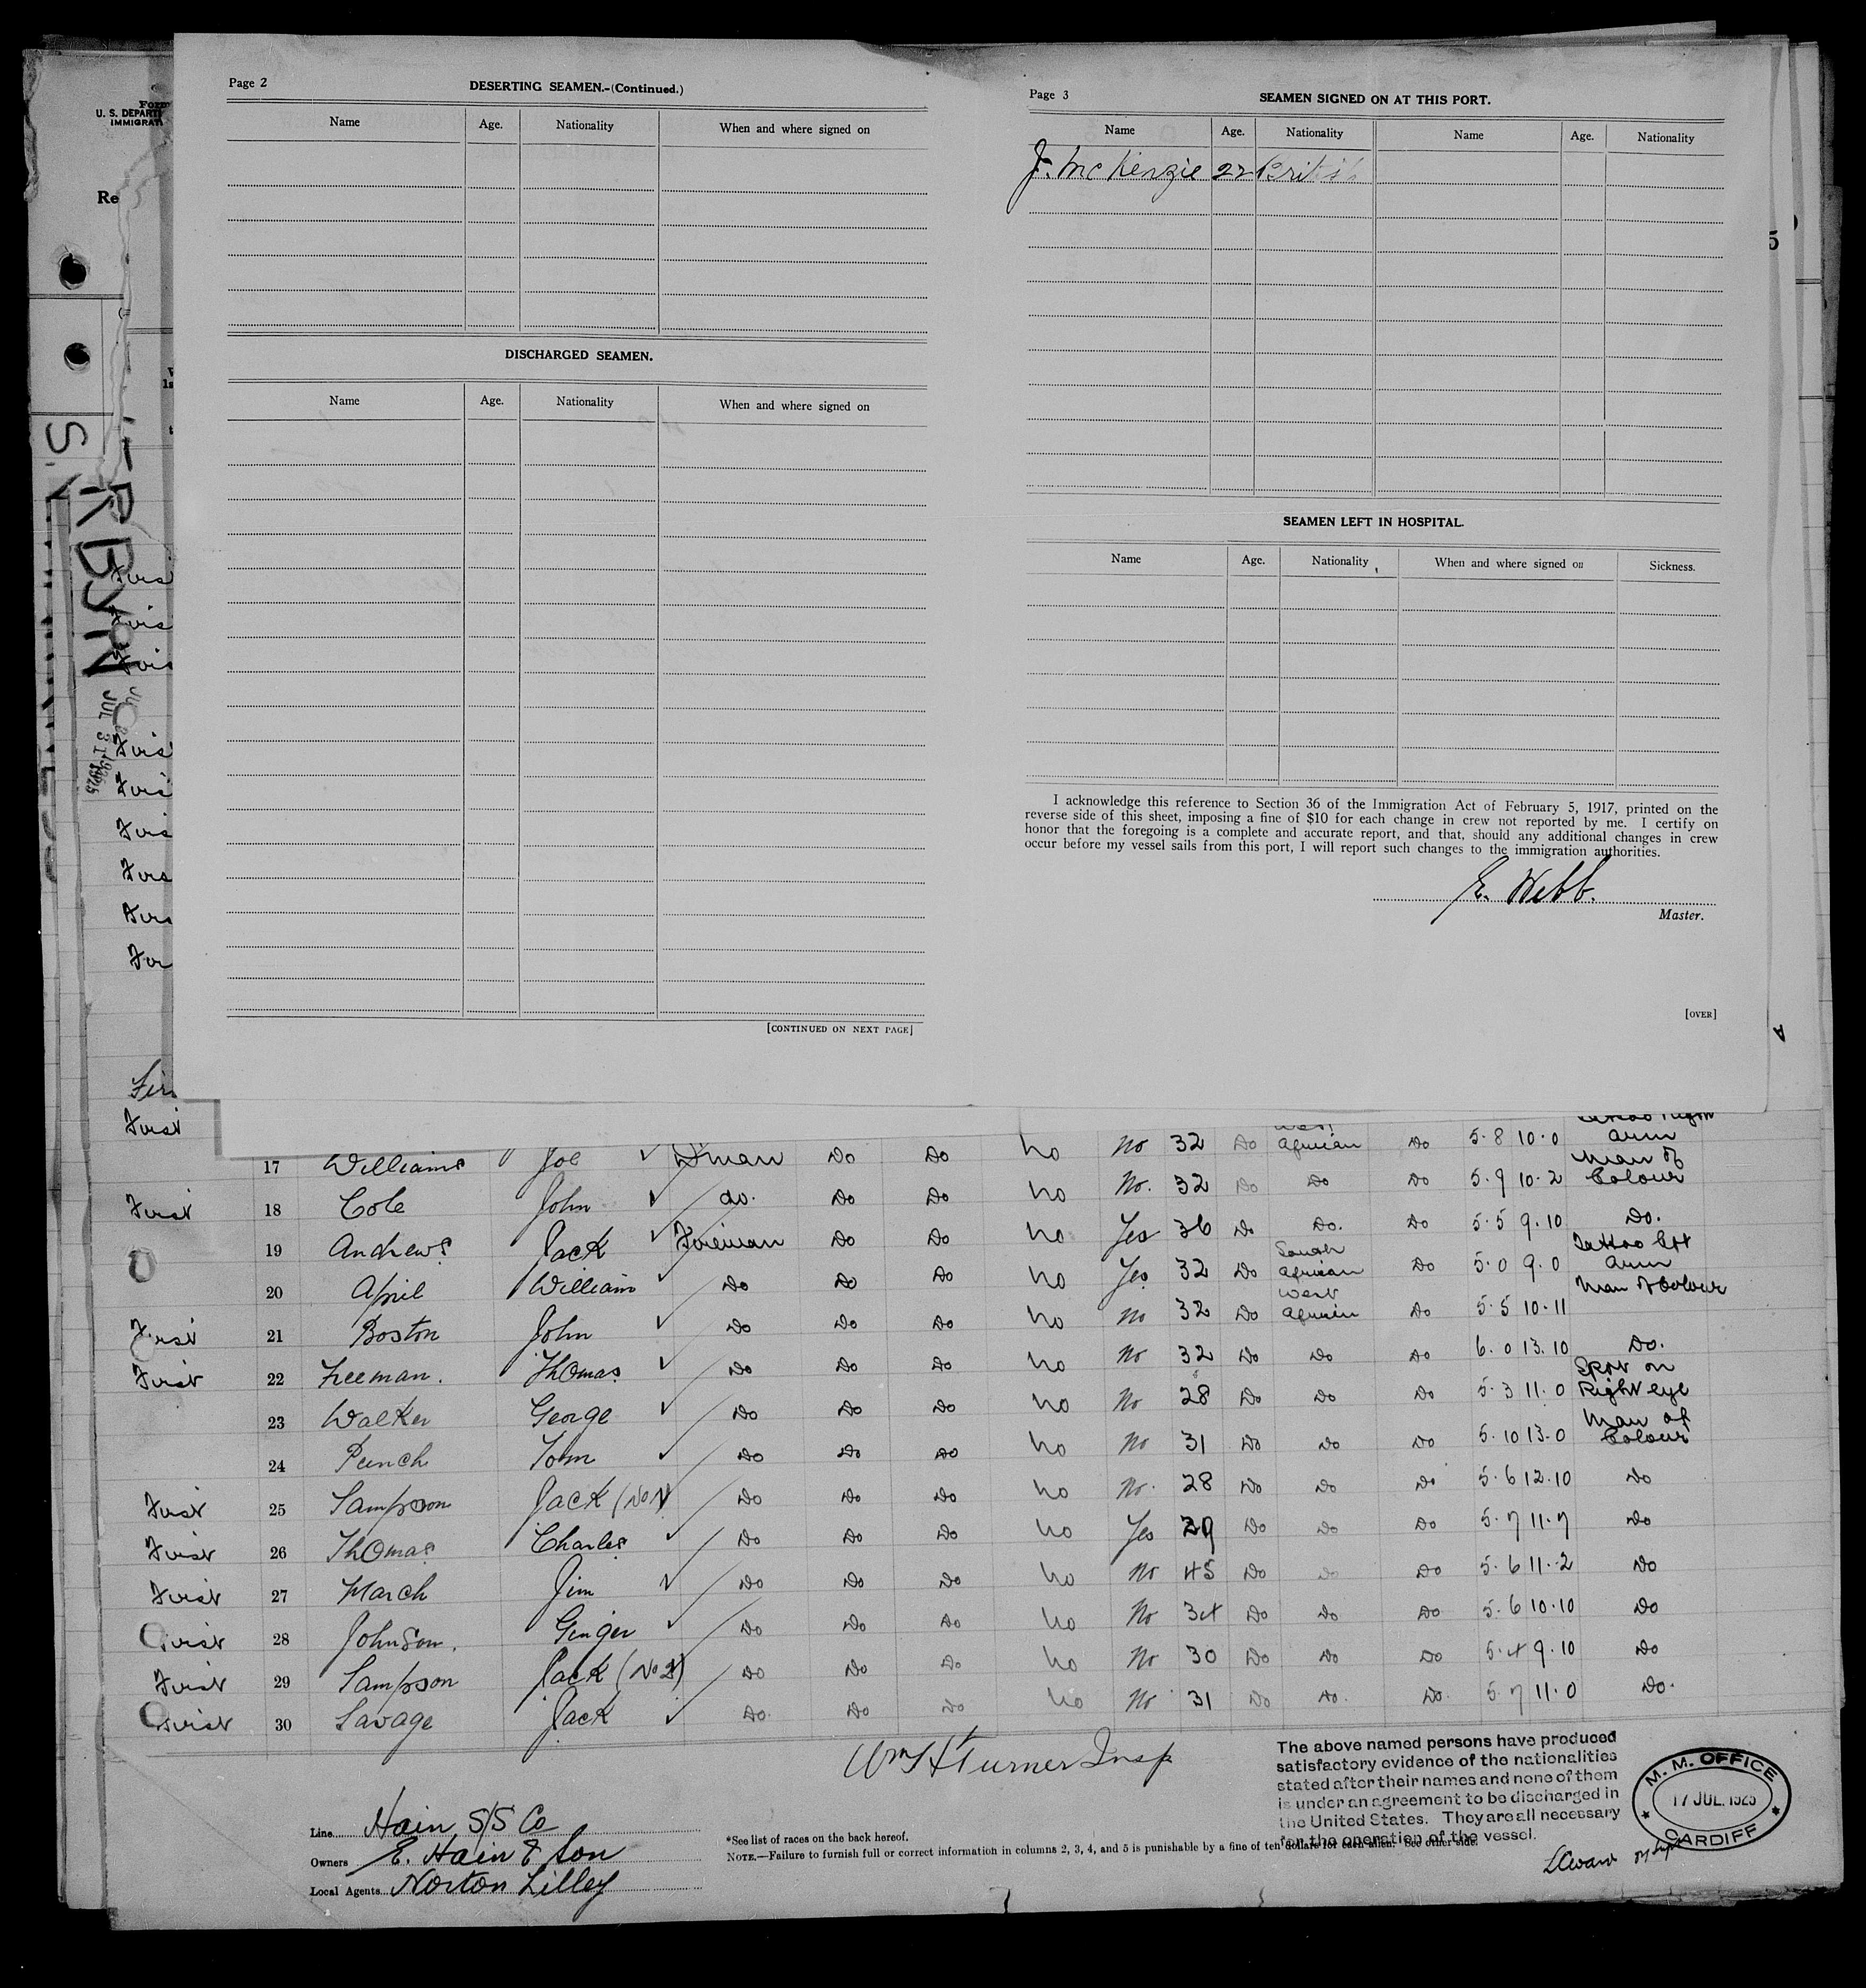 Page 2
DESERTING SEAMEN.-(Continued.)
Name Age. Nationality When and where signed on
DISCHARGED SEAMEN.
Name Age. Nationality When and where signed on
[CONTINUED ON NEXT PAGE]
Page 3
SEAMEN SIGNED ON AT THIS PORT.
Name Age. Nationality Name Age. Nationality
J. McKenzie 22 British
SEAMEN LEFT IN HOSPITAL.
Name Age. Nationality When and where signed on Sickness.
I acknowledge this reference to Section 36 of the Immigration Act of February 5, 1917, printed on the
reverse side of this sheet, imposing a fine of $10 for each change in crew not reported by me. I certify on
honor that the foregoing is a complete and accurate report, and that, should any additional changes in crew
occur before my vessel sails from this port, I will report such changes to the immigration authorities.
E. Webb.
Master.
[OVER]
U. S. DEPART
IMMIGRAT
Re
5
A
JUL 31 1925
First 17 Williams Joe Do Do no no 32 Do West African Do 5.8 10.0 arm
First 18 Cole John do. Do Do no no. 32 Do Do Do 5.9 10.2 Man of Colour
19 Andrews Jack Fireman Do Do no Yes 36 Do Do. Do 5.5 9.10 Do.
20 April William Do Do Do no Yes 32 Do South African Do 5.0 9.0 Tattoo left arm
First 21 Boston John Do Do Do no no 32 Do West African Do 5.5 10.11 Man of Colour
First 22 Freeman. Thomas Do Do Do no no 32 Do Do Do 6.0 13.10 Do.
23 Walker George Do Do Do no no 28 Do Do Do 5.3 11.0 Spot on Right eye
24 Punch Tom Do Do Do no no 31 Do Do Do 5.10 13.0 Man of Colour
First 25 Sampson Jack (No 1) Do Do Do no no. 28 Do Do Do 5.6 12.10 Do
First 26 Thomas Charles Do Do Do no Yes 29 Do Do Do 5.7 11.7 Do
First 27 March Jim Do Do Do no no 45 Do Do Do 5.6 11.2 Do
First 28 Johnson. Ginger Do Do Do no no 34 Do Do Do 5.6 10.10 Do
First 29 Sampson Jack (No 2) Do Do Do no no 30 Do Do Do 5.4 9.10 Do
First 30 Savage Jack Do. Do Do no no 31 Do Do. Do. 5.7 11.0 Do.
Wm H Turner Insp
The above named persons have produced
satisfactory evidence of the nationalities
stated after their names and none of them
is under an agreement to be discharged in
the United States. They are all necessary
for the operation of the vessel.
M. M. OFFICE
17 JUL. 1925
CARDIFF
Line Hain S/S Co
Owners E. Hain & Son
Local Agents Norton Lilley
*See list of races on the back hereof.
NOTE.—Failure to furnish full or correct information in columns 2, 3, 4, and 5 is punishable by a fine of ten dollars for each alien. See other side.